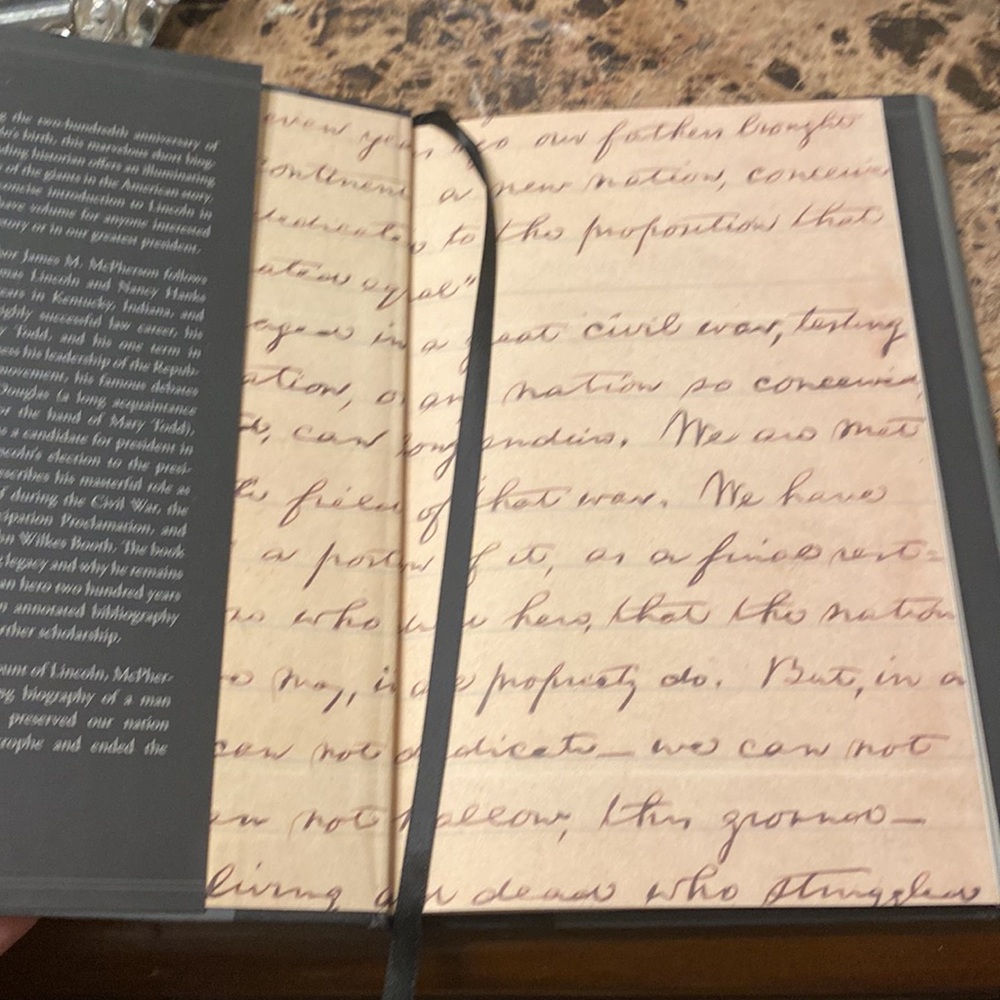 g the two-hundredth anniversary of
ln's birth, this marvelous short biog-
ding historian offers an illuminating
of the giants in the American story.
concise introduction to Lincoln in
have volume for anyone interested
story or in our greatest president.
sor James M. McPherson follows
mas Lincoln and Nancy Hanks
ears in Kentucky, Indiana, and
ghly successful law career, his
y Todd, and his one term in
ses his leadership of the Repub-
movement, his famous debates
Douglas (a long acquaintance
or the hand of Mary Todd),
s a candidate for president in
coln's election to the presi-
scribes his masterful role as
f during the Civil War, the
cipation Proclamation, and
hn Wilkes Booth. The book
legacy and why he remains
an hero two hundred years
n annotated bibliography
rther scholarship.
unt of Lincoln, McPher-
ng biography of a man
preserved our nation
rophe and ended the
even years ago our fathers brought
ontinent a new nation, conceive
dedicated to the proposition that
eated equal"
aged in a great civil war, testing
ation, or any nation so conceived,
d, can long endure. We are met
le field of that war. We have
a portion of it, as a final rest=
who died here, that the nation
may, in all propriety do. But, in a
can not dedicate— we can not
an not hallow, this ground—
living and dead who struggled